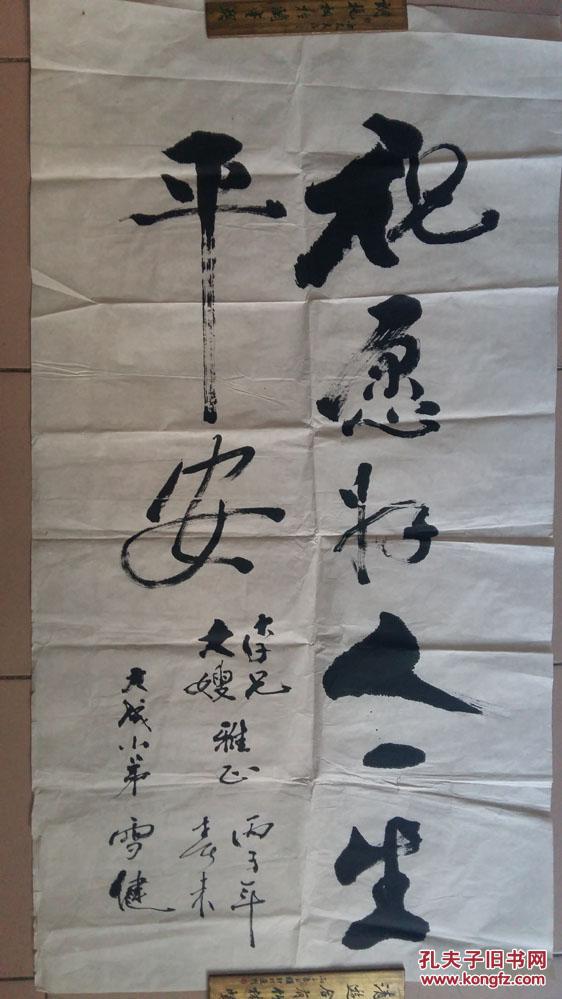 祝愿好人一生
平安
大嫂 雅正
丙子年
春末
大成小弟
雪健
孔夫子旧书网
www.kongfz.com